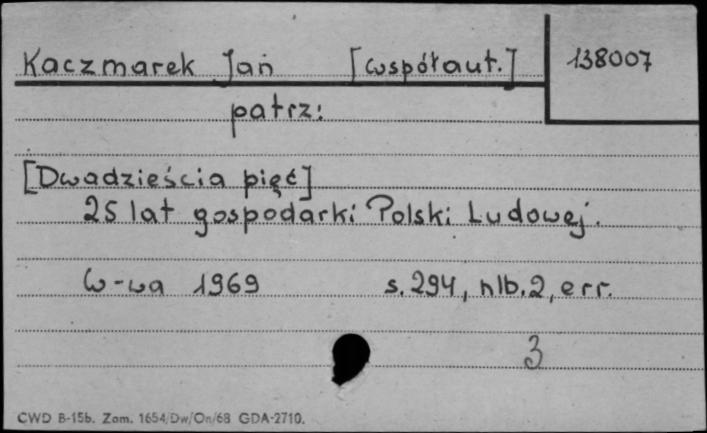 Kaczmarek Jan [współaut.] 138007
patrz:
[Dwadzieścia pięć]
25 lat gospodarki Polski Ludowej.
W-wa 1969 s. 294, nlb. 2, err.
3
CWD B-15b. Zam. 1654/Dw/On/68 GDA-2710.